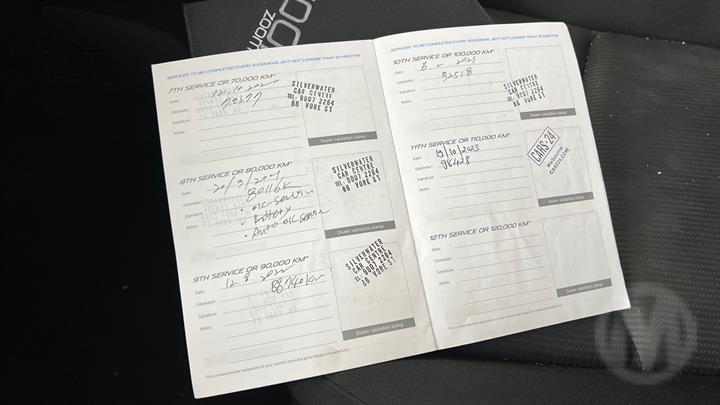 zoom
SERVICES TO BE COMPLETED EVERY 10,000KM, BUT NOT LONGER THAN 12 MONTHS
7TH SERVICE OR 70,000 KM*
Date:
Odometer:
Signature:
Notes:
SILVERWATER
CAR CENTRE
TEL: 9007 2264
66 VORE ST
Dealer validation stamp
8TH SERVICE OR 80,000 KM*
Date: 20/9/2021
Odometer: 80116K
Signature:
• oil service
Notes:
• Battery
• Auto oil service
SILVERWATER
CAR CENTRE
TEL: 9007 2264
66 VORE ST
Dealer validation stamp
9TH SERVICE OR 90,000 KM*
Date: 12.9.2022
Odometer: 88740km
Signature:
Notes:
SILVERWATER
CAR CENTRE
TEL: 9007 2264
66 VORE ST
Dealer validation stamp
SERVICES TO BE COMPLETED EVERY 10,000KM, BUT NOT LONGER THAN 12 MONTHS
10TH SERVICE OR 100,000 KM*
Date:
Odometer: 92518
Signature:
Notes:
SILVERWATER
CAR CENTRE
TEL: 9007 2264
66 VORE ST
Dealer validation stamp
11TH SERVICE OR 110,000 KM*
Date: 19/10/2023
Odometer: 98428
Signature:
Notes:
CARS 24
CARS24.COM
Dealer validation stamp
12TH SERVICE OR 120,000 KM*
Date:
Odometer:
Signature:
Notes:
Dealer validation stamp
M